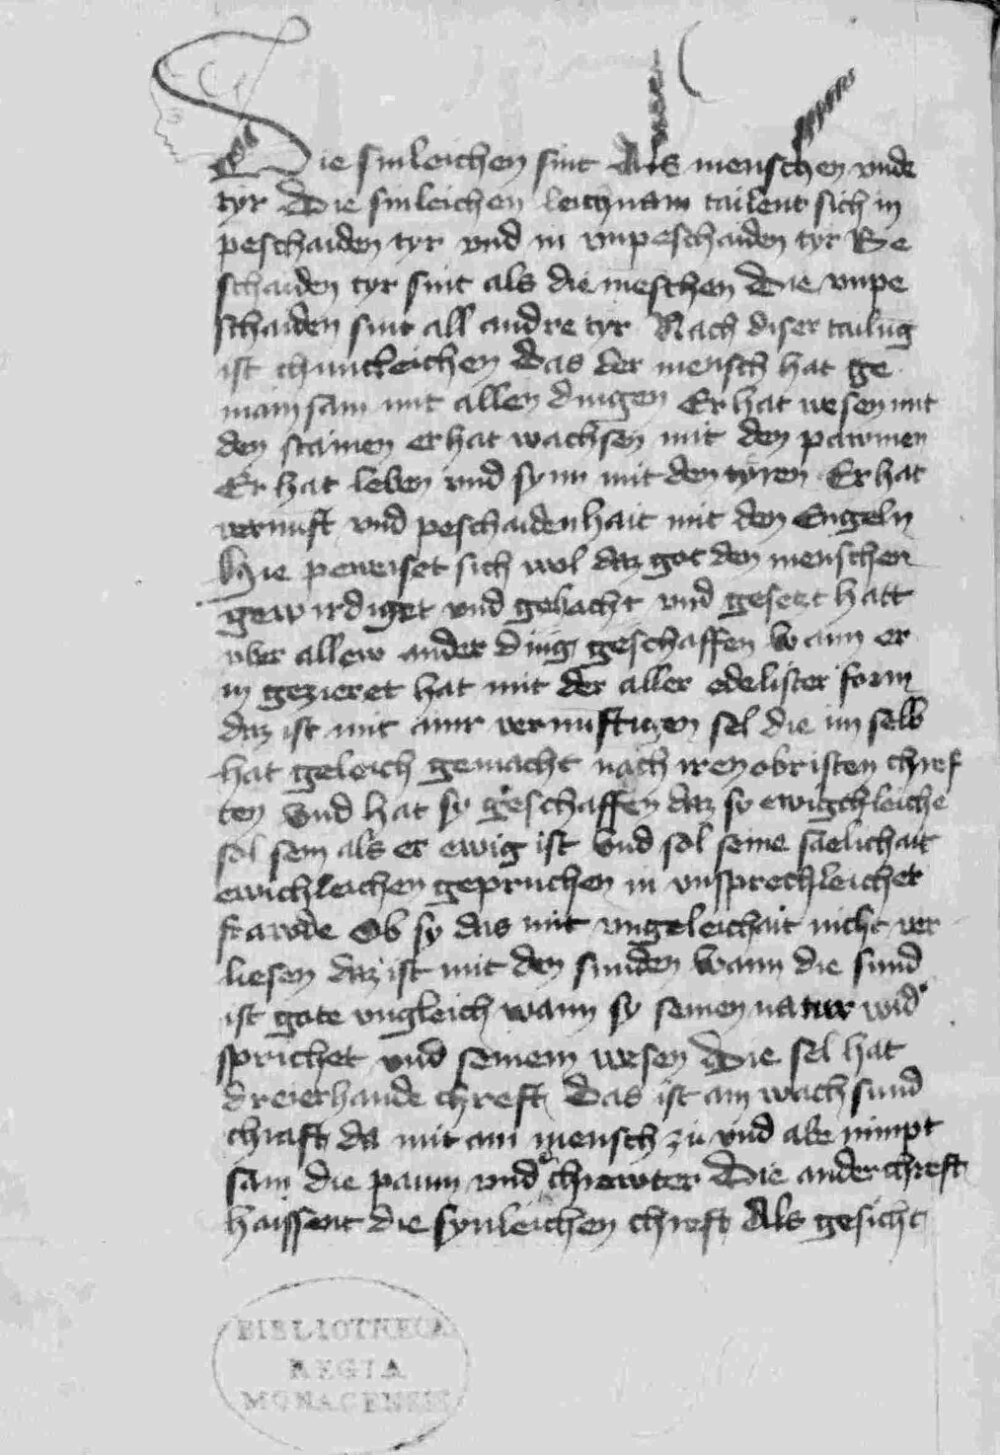 Die sinleichen sint Als menschen vnde
tyr Die sinleichen leichnam tailent sich in
peschaiden tyr vnd in vnpeschaiden tyr Be
schaiden tyr sint als die meschen Die vnpe
schaiden sint all andre tyr Nach diser tailūg
ist chuntleichen Das der mensch hat ge
mainsam mit allen dingen Er hat wesen mit
den stainen er hat wachsen mit den pawmen
Er hat leben vnd synn mit den tyren Er hat
vernuft vnd peschaidenhait mit den Engeln
Hie peweiset sich wol daz got den menschen
gewirdiget vnd gehacht vnd gesetzt hatt
vber allew ander ding geschaffen Wann er
in gezieret hat mit der aller edelister form
daz ist mit ainr vernuftigen sel die im selb
hat geleich gemacht nach iren obristen chref
ten Vnd hat sy geschaffen daz sy ewigchleiche
sol sein als er ewig ist Vnd sol seine saelichait
ewichleichen gepruchen in vnsprechleicher
frawde Ob sy das mit vngeleichait nicht ver
liesen daz ist mit den sunden Wann die sund
ist gote vngleich wann sy seinen natur wid'
sprichet vnd seinem wesen Die sel hat
dreierhande chreft Das ist ain wachsund
chraft da mit ain mensch zu vnd abe nimpt
sam die paum vnd chrawter Die ander chreft
haissent die synleichen chreft Als gesicht
BIBLIOTHECA
REGIA
MONACENSIS